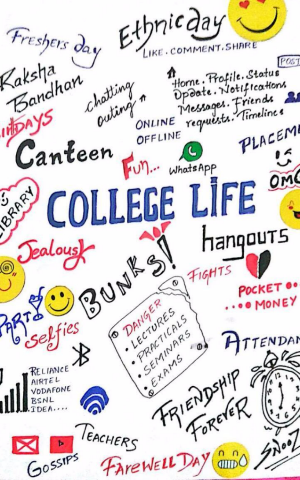 Ethnic day
Freshers day
LIKE. COMMENT. SHARE
POST
Raksha
Bandhan
chatting
outing
Home. Profile. Status
Update. Notifications
Messages. Friends
requests. Timelines
ONLINE
OFFLINE
Canteen
Fun...
WhatsApp
LIBRARY
COLLEGE LIFE
Jealousy
hangouts
BUNKS!
FIGHTS
POCKET
MONEY
Selfies
DANGER
• LECTURES
• PRACTICALS
• SEMINARS
• EXAMS
RELIANCE
AIRTEL
VODAFONE
BSNL
IDEA....
FRIENDSHIP
FOREVER
TEACHERS
GOSSIPS
FAREWELL DAY